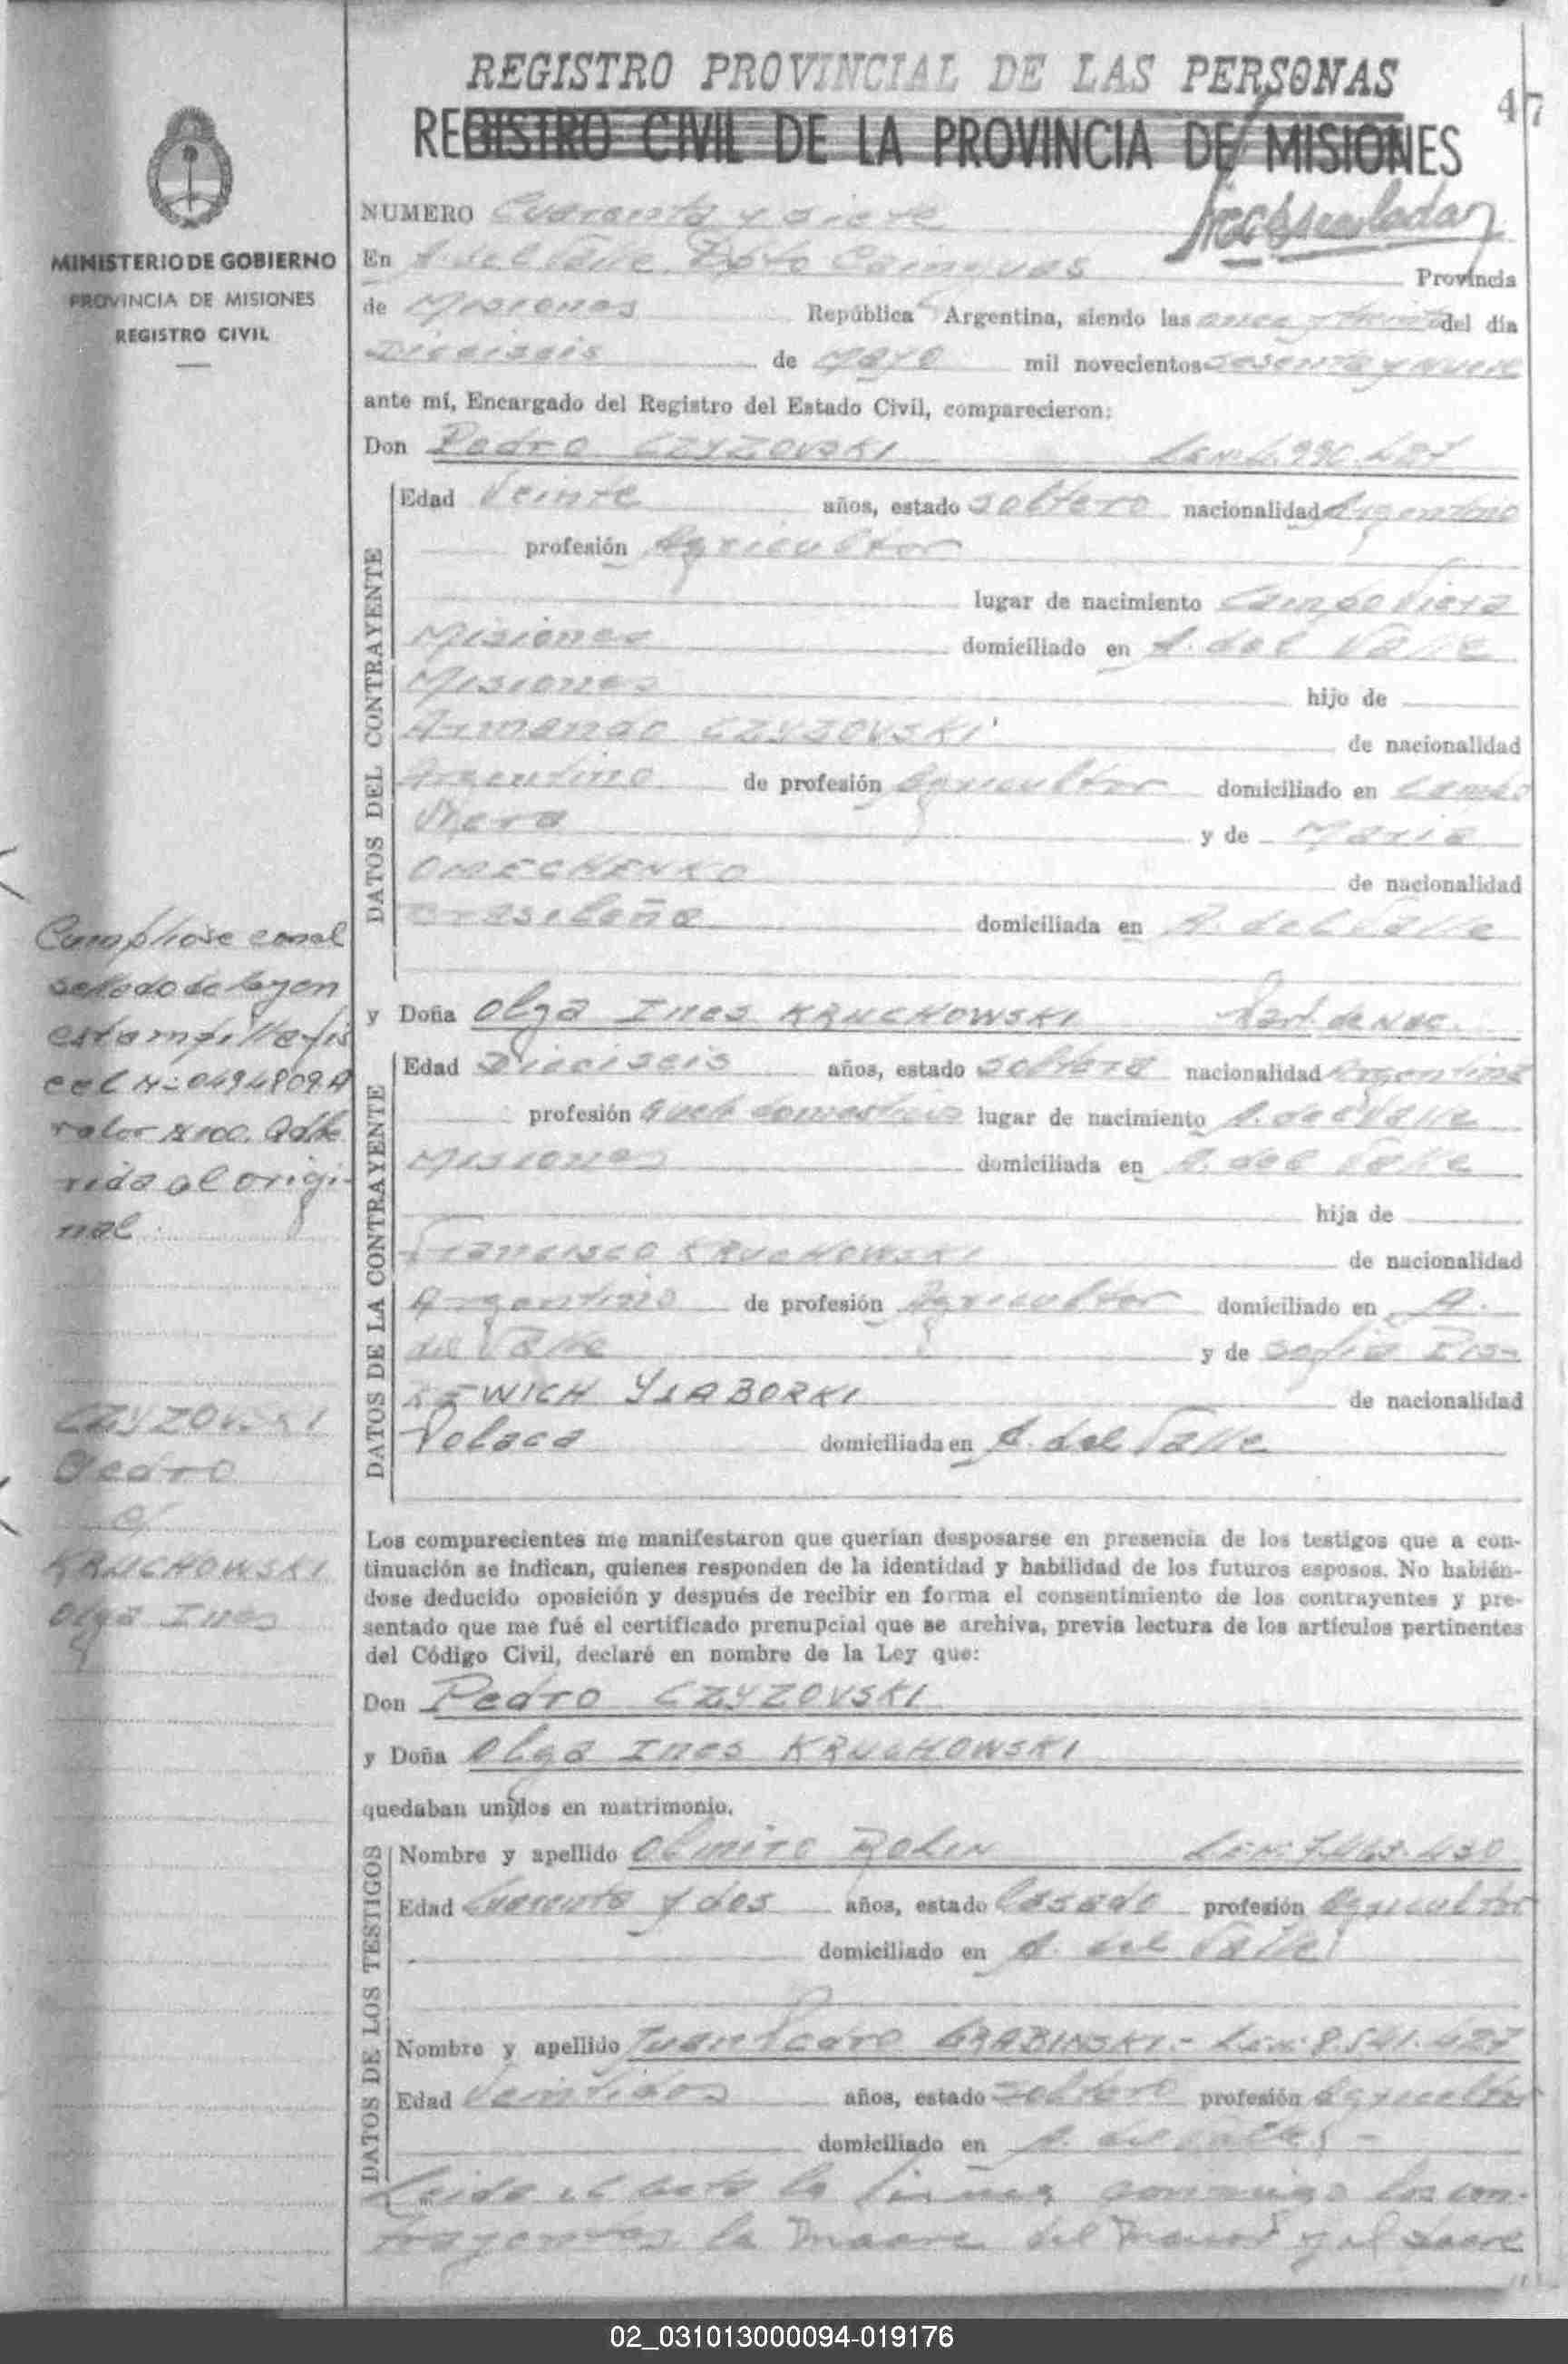 REGISTRO PROVINCIAL DE LAS PERSONAS
47
REGISTRO CIVIL DE LA PROVINCIA DE MISIONES
MINISTERIO DE GOBIERNO
PROVINCIA DE MISIONES
REGISTRO CIVIL
NUMERO Cuarenta y siete
En A. del Valle Dpto Cainguas Provincia
de Misiones República Argentina, siendo las once y treinta del día
Dieciseis de Mayo mil novecientos sesenta y nueve
ante mí, Encargado del Registro del Estado Civil, comparecieron:
Don Pedro CZYZOVSKI
DATOS DEL CONTRAYENTE
Edad Veinte años, estado soltero nacionalidad Argentino
profesión Agricultor
lugar de nacimiento Campo Viera
Misiones domiciliado en A. del Valle
Misiones hijo de
Armando CZYZOVSKI de nacionalidad
Argentino de profesión Agricultor domiciliado en Campo
Viera y de Maria
OMECHENKO de nacionalidad
Brasileña domiciliada en A. del Valle
y Doña Olga Ines KRUCHOWSKI Part. de Nac.
DATOS DE LA CONTRAYENTE
Edad Dieciseis años, estado soltera nacionalidad Argentina
profesión Queh domesticos lugar de nacimiento A. del Valle
Misiones domiciliada en A. del Valle
hija de
Francisco KRUCHOWSKI de nacionalidad
Argentino de profesión Agricultor domiciliado en A.
del Valle y de Sofia
KEWICH YLABORKI de nacionalidad
Polaca domiciliada en A. del Valle
Cumpliose con el
sellado de ley en
estampilla fis
cal Nº 0494809A
valor $100. Adhe
rida al origi-
nal.
CZYZOVSKI
Pedro
c/
KRUCHOWSKI
Olga Ines
Los comparecientes me manifestaron que querían desposarse en presencia de los testigos que a con-
tinuación se indican, quienes responden de la identidad y habilidad de los futuros esposos. No habién-
dose deducido oposición y después de recibir en forma el consentimiento de los contrayentes y pre-
sentado que me fué el certificado prenupcial que se archiva, previa lectura de los artículos pertinentes
del Código Civil, declaré en nombre de la Ley que:
Don Pedro CZYZOVSKI
y Doña Olga Ines KRUCHOWSKI
quedaban unidos en matrimonio.
DATOS DE LOS TESTIGOS
Nombre y apellido Olmiro ROLIN L.E.Nº 7.463.430
Edad Cuarenta y dos años, estado Casado profesión Agricultor
domiciliado en A. del Valle
Nombre y apellido Juan Pedro GRABINSKI.- L.E.Nº 8.541.427
Edad Veintidos años, estado soltero profesión Agricultor
domiciliado en A. del Valle.-
Leida el acta la firman conmigo los con-
trayentes, la madre del menor y el padre
02_031013000094-019176